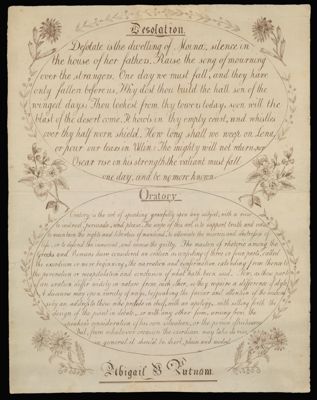 Desolation.
Desolate is the dwelling of Moina, silence in
the house of her fathers. Raise the song of mourning
over the strangers. One day we must fall, and they have
only fallen before us. Why dost thou build the hall son of the
winged days. Thou lookest from thy towers today, soon will the
blast of the desert come. It howls in thy empty court, and whistles
over thy half worn shield. How long shall we weep on Lena,
or pour our tears in Ullin. The mighty will not return nor
Oscar rise in his strength, the valiant must fall
one day, and be no more known
Oratory
Oratory is the art of speaking gracefully upon any subject, with a view
to instruct, persuade, and please. The
from the rights and liberties of mankind, to alleviate the miseries and distresses of
life, or to defend the innocent, and accuse the guilty. The masters of rhetoric among the
Greeks and Romans have considered an oration as consisting of three or four parts, called
the exordium or mere beginning, the narration and confirmation extending from thence to
the peroration or recapitulation and conclusion of what hath been said. Now, as these parts
an oration differ widely in nature from each other, so they require a difference of
the
design of the point in debate, or with any other form, arising from the
speakers consideration of his own situation, or the
but, from whatever
in general it should be short, plain and modest.
Abigail B Putnam.